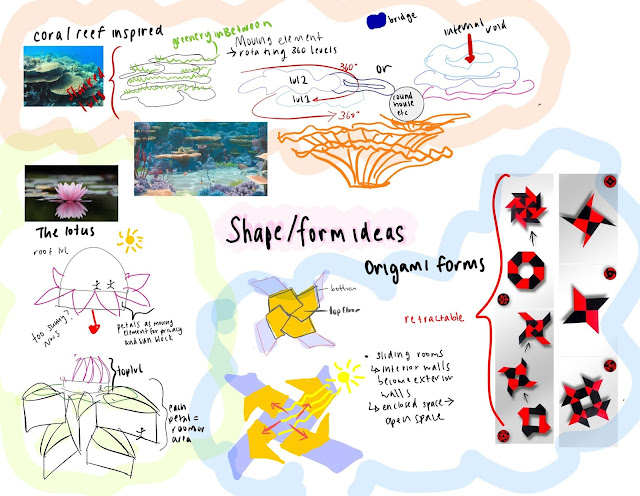 coral reef inspired
greenery inbetween
Moving element
→ rotating 360 levels
bridge
internal
void
360°
lvl 2
or
lvl 2
round
house
etc
360°
The lotus
roof lvl
too sunny?
petals as moving
element for privacy
and sun block
top lvl
each
petal =
room or
area
Shape/form ideas
bottom
top floor
Origami forms
retractable
• sliding rooms
↳ interior walls
become exterior
walls
↳ enclosed space →
open space